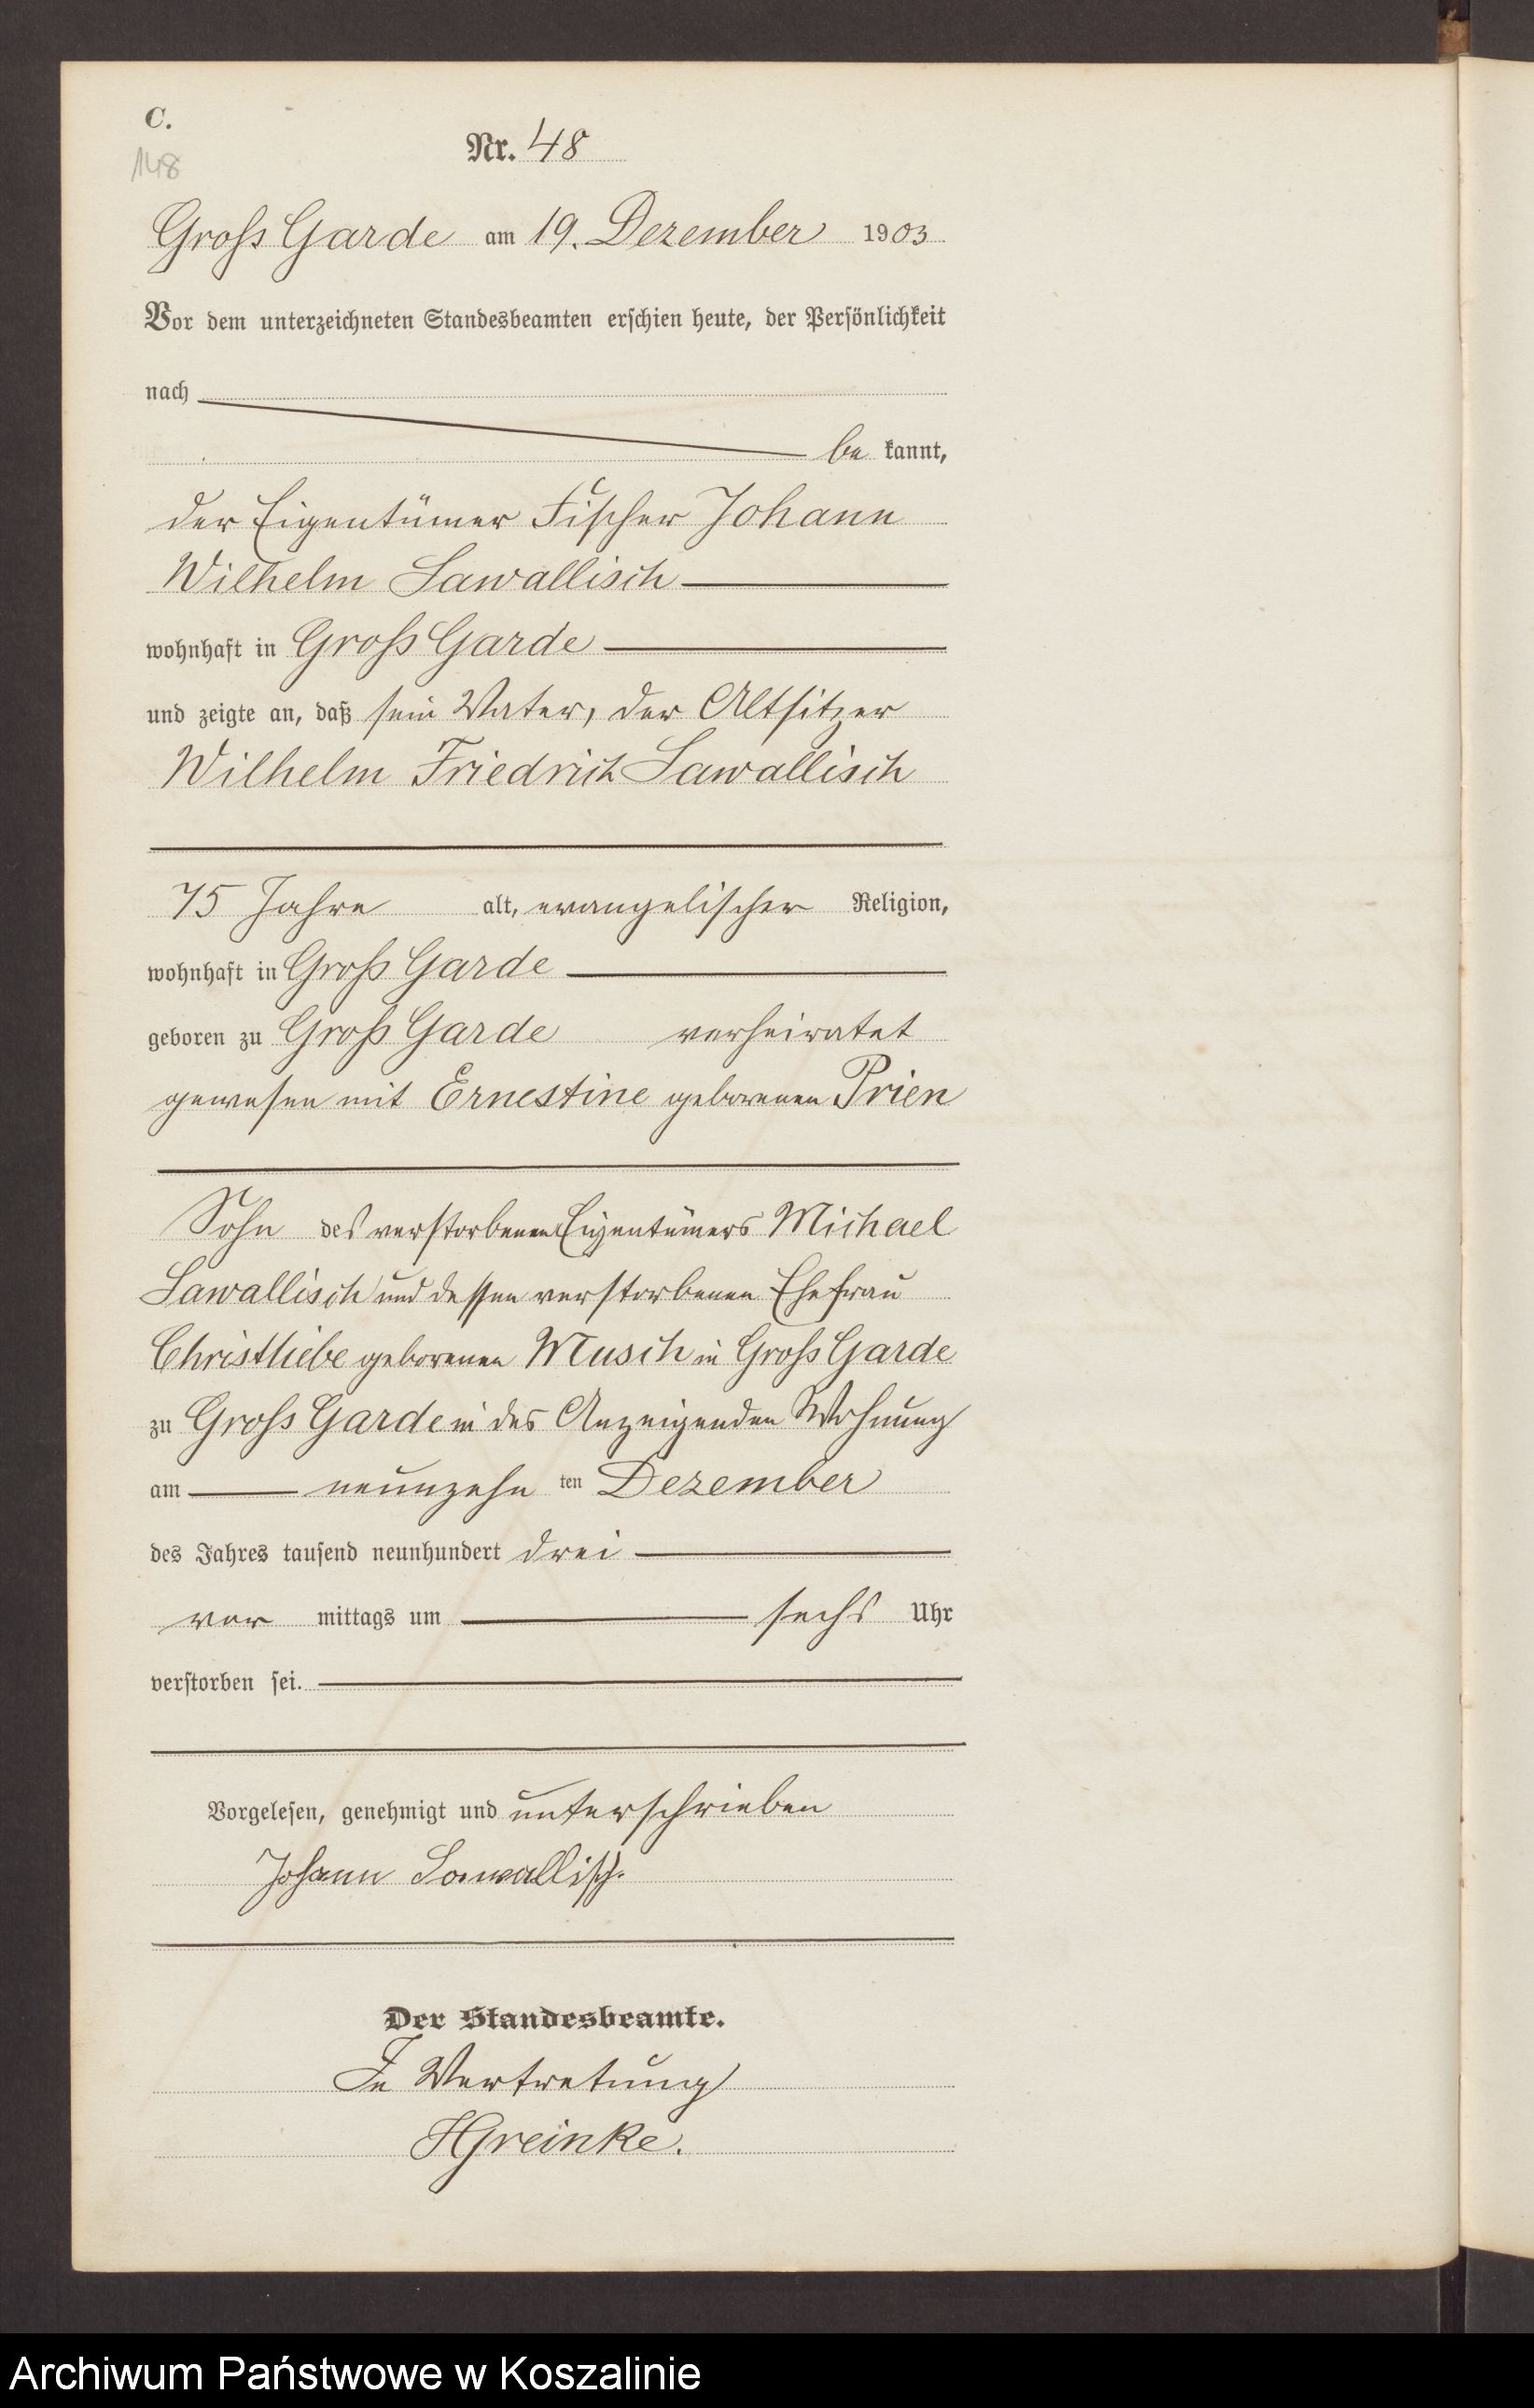 C.
148
Nr. 48
Gross Garde am 19. Dezember 1903
Vor dem unterzeichneten Standesbeamten erschien heute, der Persönlichkeit
nach
be kannt,
der Eigentümer Fischer Johann
Wilhelm Sawallisch
wohnhaft in Gross Garde
und zeigte an, daß sein Vater, der Altsitzer
Wilhelm Friedrich Sawallisch
75 Jahre alt, evangelischer Religion,
wohnhaft in Gross Garde
geboren zu Gross Garde verheiratet
gewesen mit Ernestine geborenen Prien
Sohn des verstorbenen Eigentümers Michael
Sawallisch und dessen verstorbenen Ehefrau
Christliebe geborenen Musch in Gross Garde
zu Gross Garde in des Anzeigenden Wohnung
am neunzehn ten Dezember
des Jahres tausend neunhundert drei
vor mittags um sechs Uhr
verstorben sei.
Vorgelesen, genehmigt und unterschrieben
Johann Sawallisch.
Der Standesbeamte.
In Vertretung
HGreinke.
Archiwum Państwowe w Koszalinie